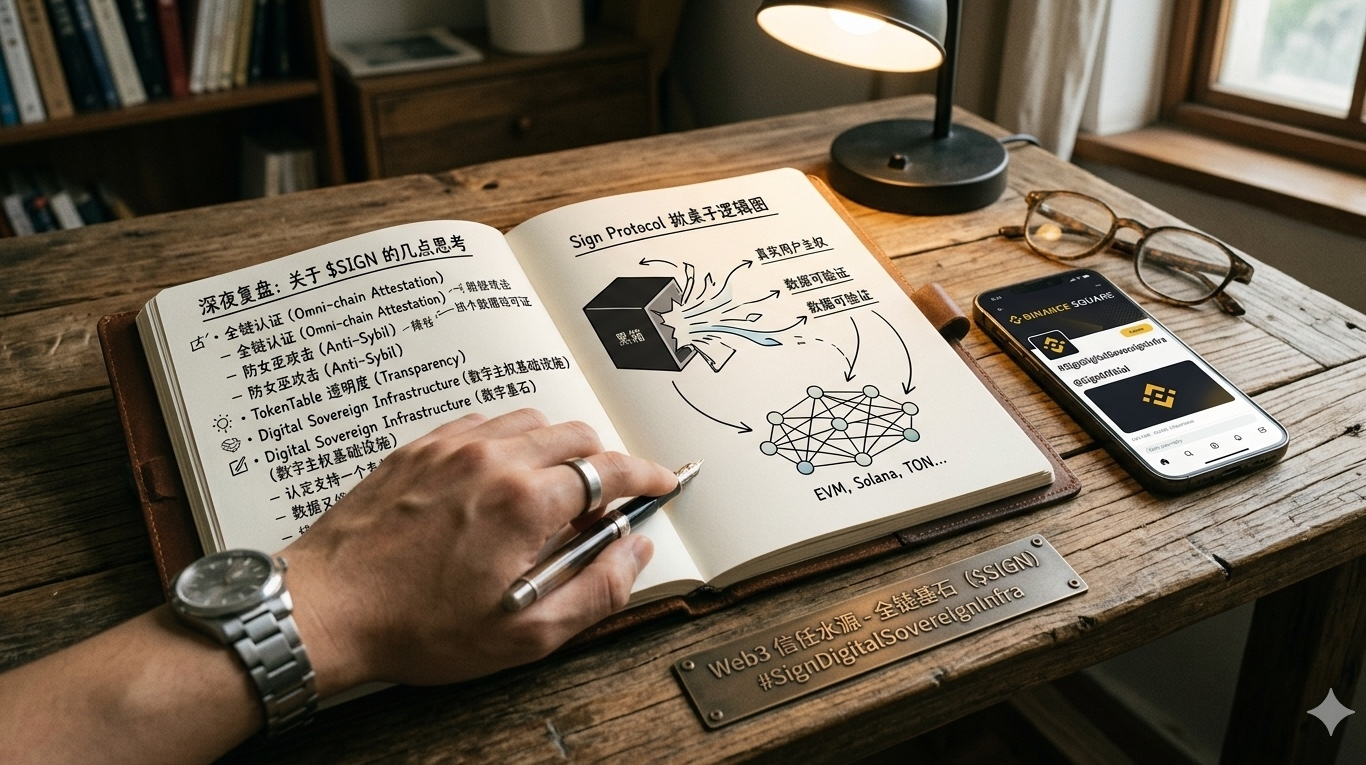 深夜复盘: 关于 $SIGN 的几点思考
• 全链认证 (Omni-chain Attestation)
– 全链认证 (Omni-chain Attestation)
– 防女巫攻击 (Anti-Sybil)
防女巫攻击 (Anti-Sybil)
• TokenTable 透明度 (Transparency)
• Digital Sovereign Infrastructure (数字主权基础设施)
• Digital Sovereign Infrastructure (数字基石)
(数字主权基础设施)
– 认定支持一个
– 数据又
Sign Protocol 掀桌子逻辑图
黑箱
真实用户主权
数据可验证
数据可验证
EVM, Solana, TON...
BINANCE SQUARE
#SignDigitalSovereignInfra
Web3 信任水源 - 全链基石 ($SIGN)
#SignDigitalSovereignInfra